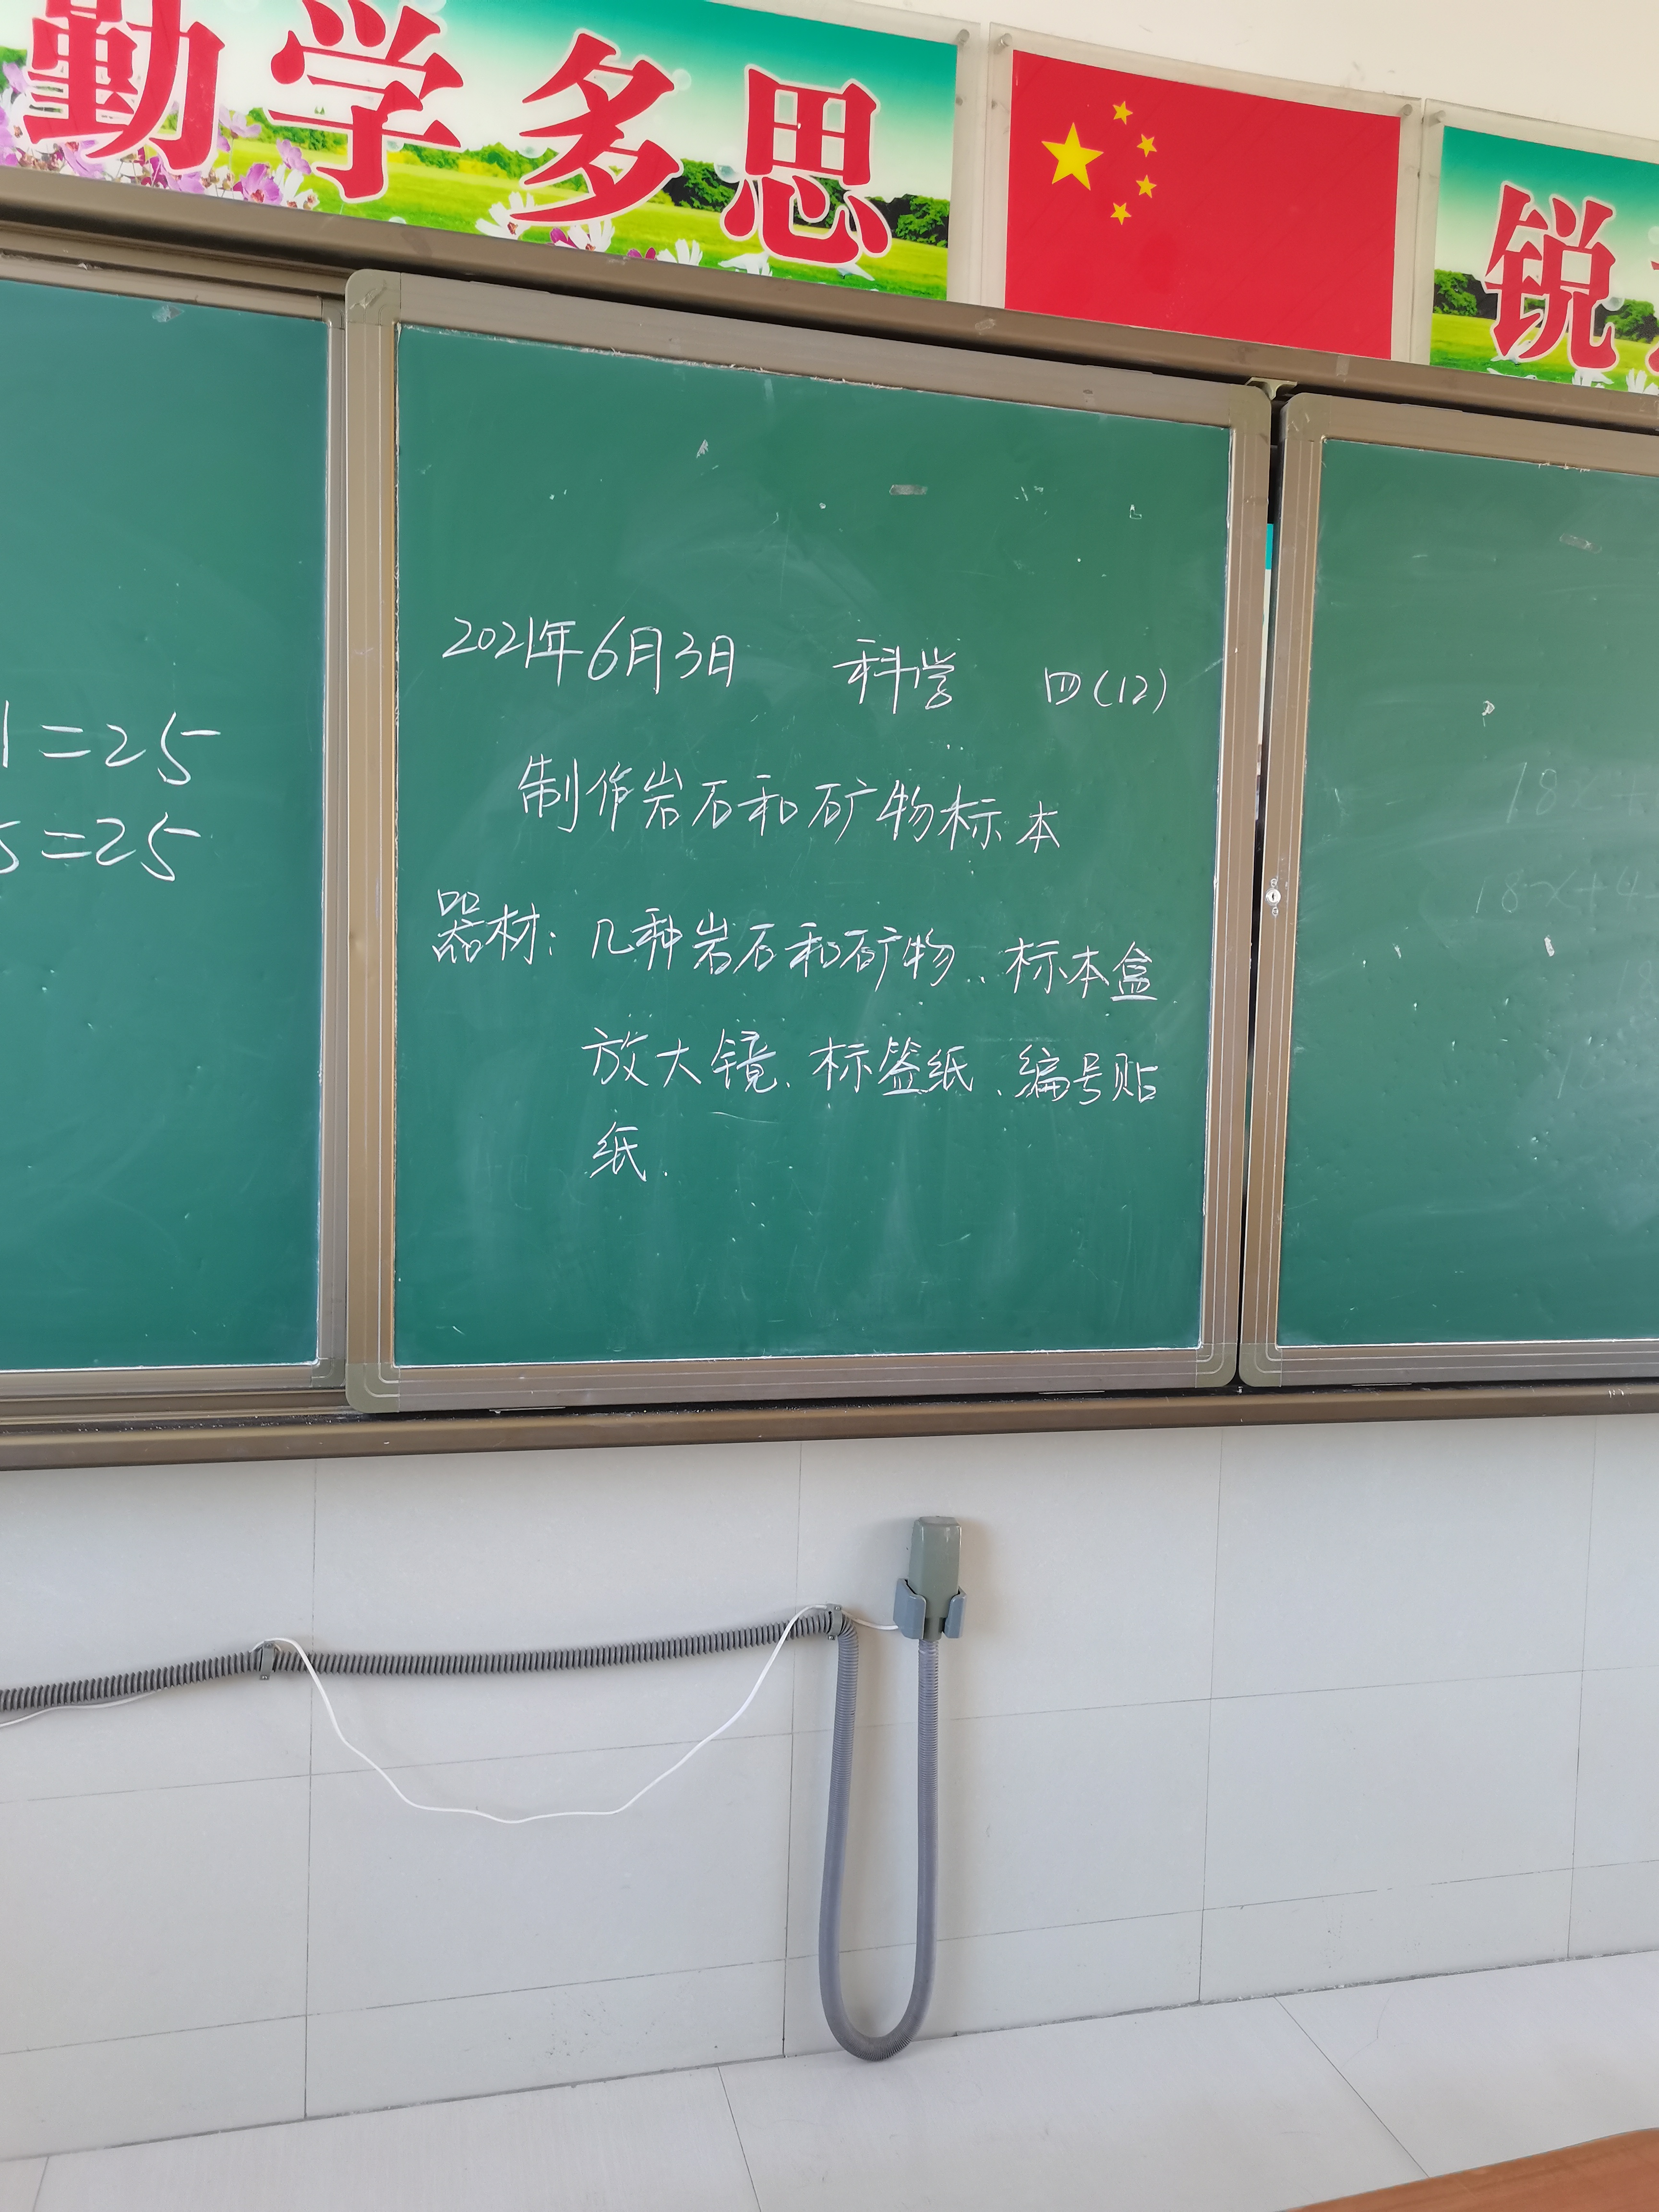 勤学多思
锐
2021年6月3日 科学 四(12)
制作岩石和矿物标本
器材：几种岩石和矿物、标本盒
放大镜、标签纸、编号贴
纸.
1=25
5=25
18x+
18x+4